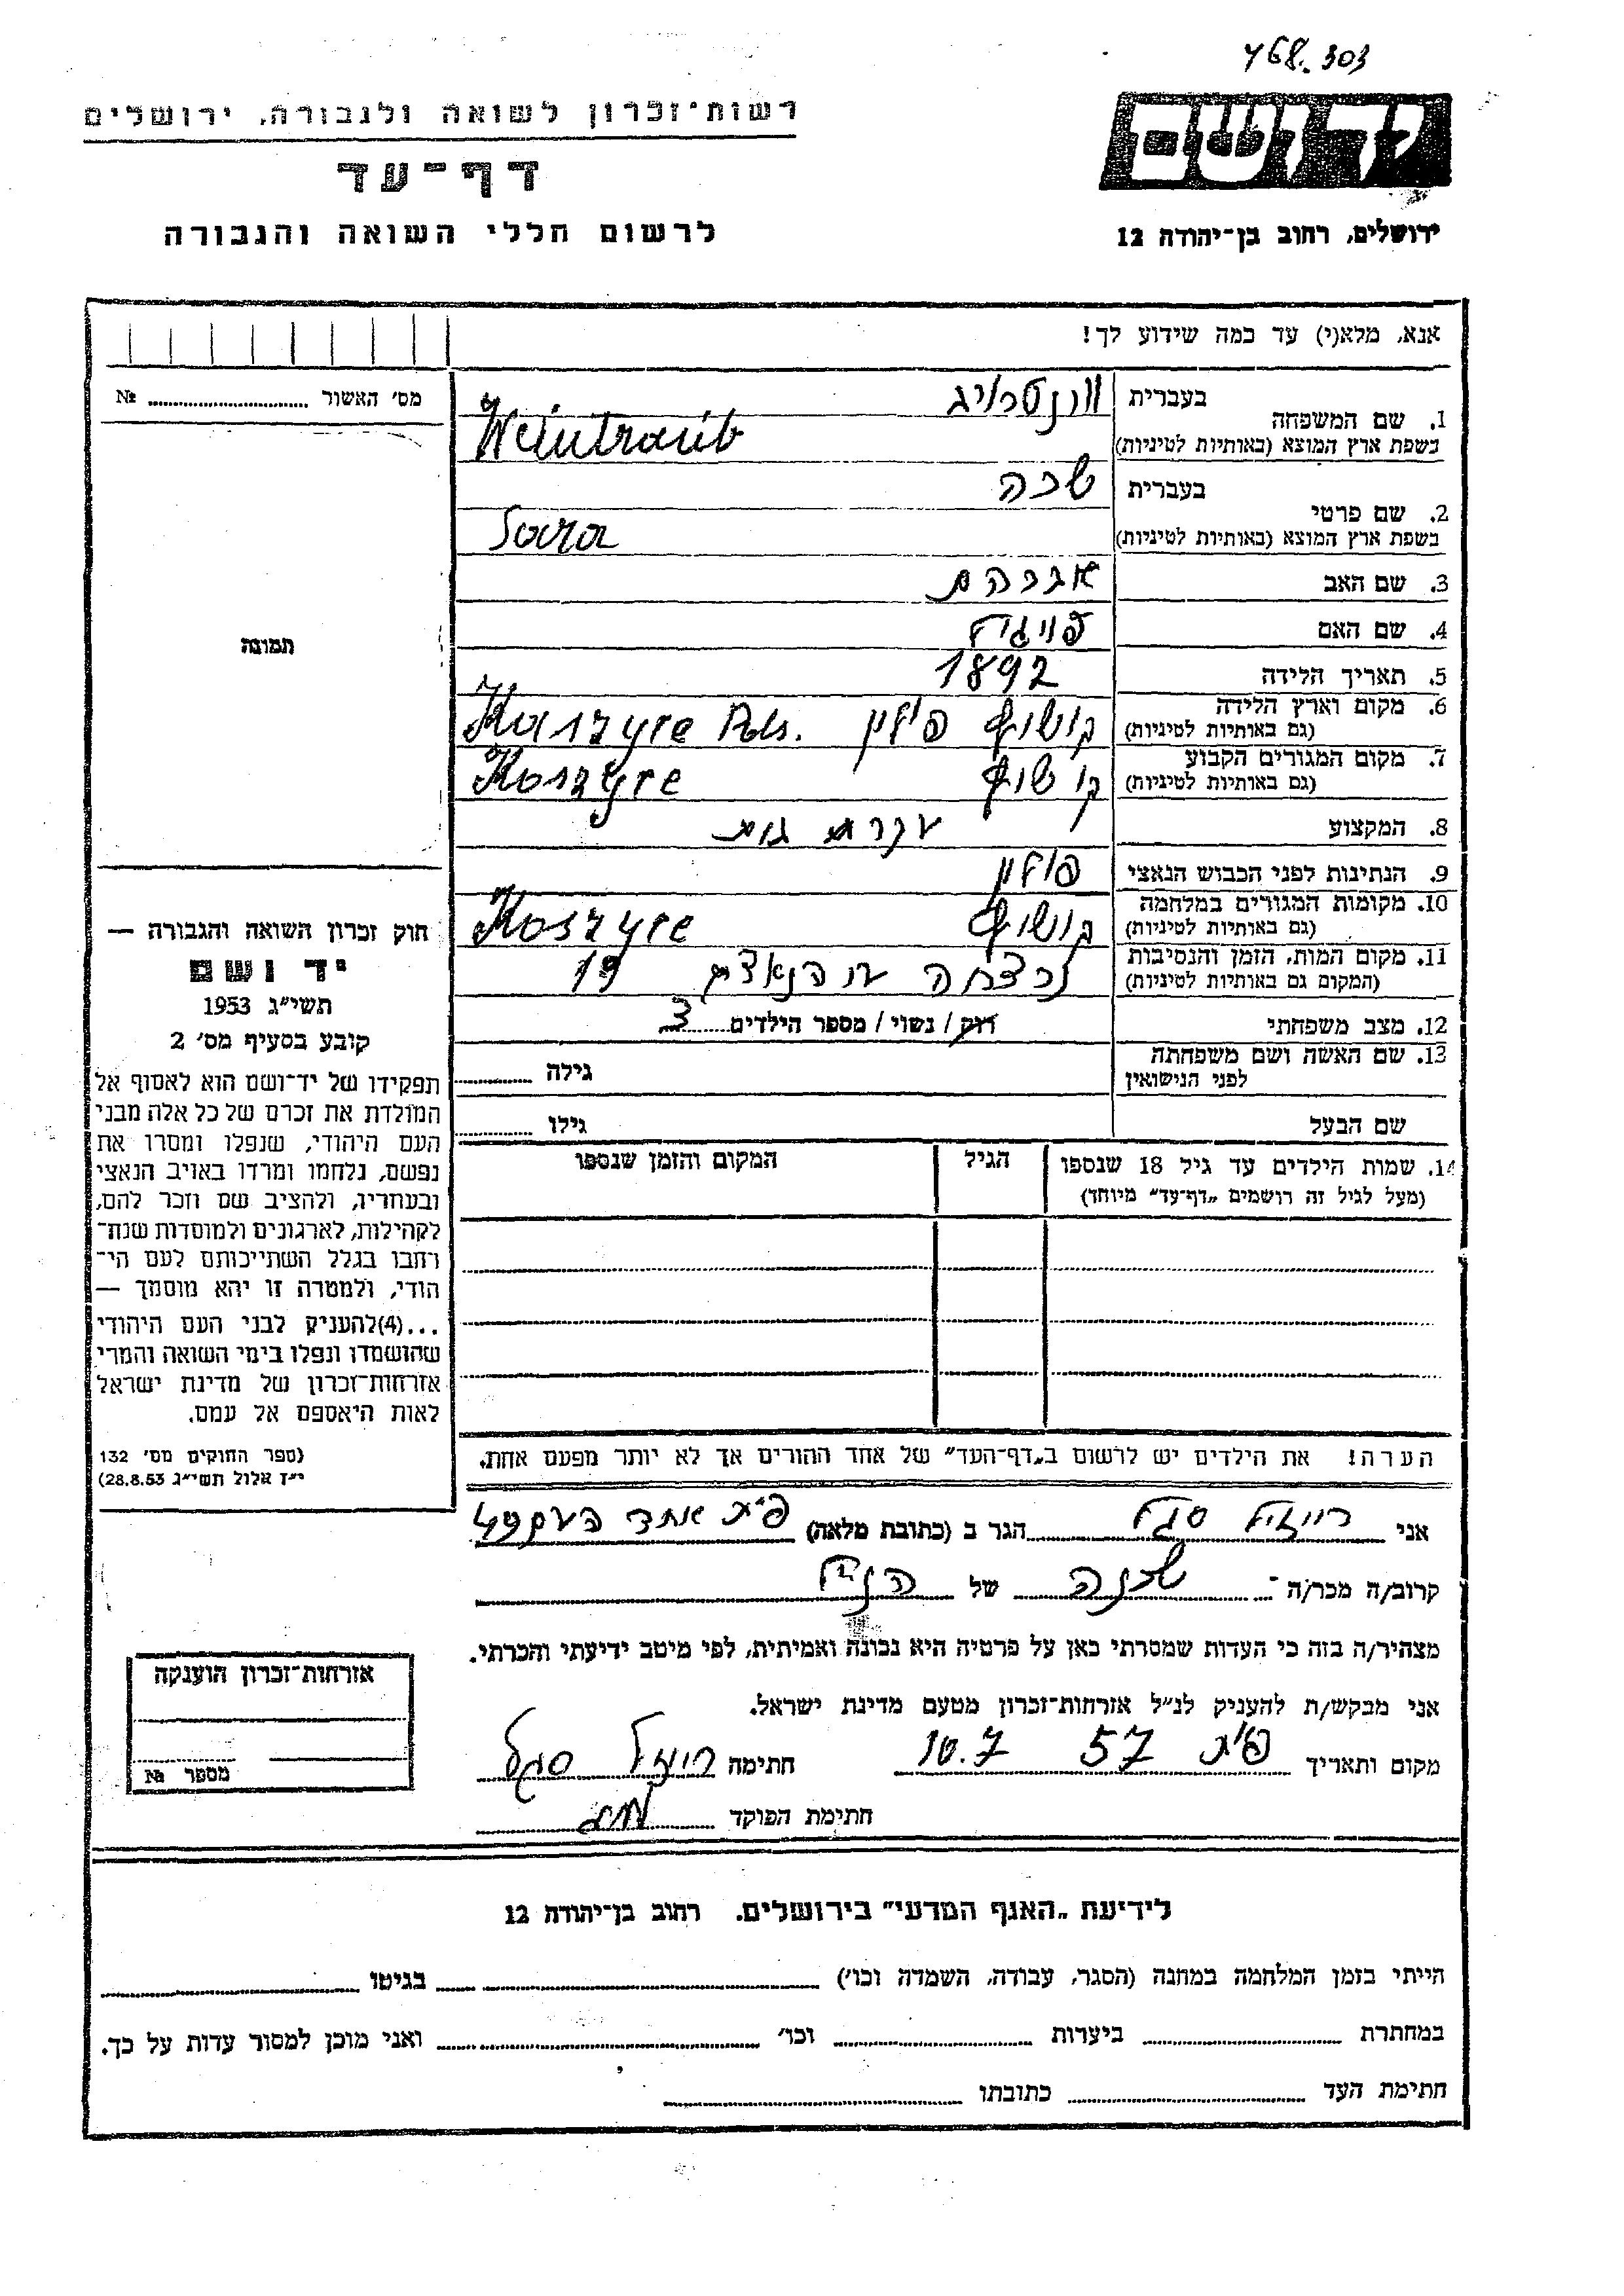 468.303
רשות־זכרון לשואה ולגבורה, ירושלים
דף־עד
לרשום חללי השואה והגבורה
יד ושם
ירושלים, רחוב בן־יהודה 12
אנא, מלא(י) עד כמה שידוע לך!
מס׳ האשור № 
1. שם המשפחה בעברית
בשפת ארץ המוצא (באותיות לטיניות) Weintraub
2. שם פרטי בעברית שרה
בשפת ארץ המוצא (באותיות לטיניות) Sora
3. שם האב אברהם
4. שם האם פייגיל
5. תאריך הלידה 1892
6. מקום וארץ הלידה (גם באותיות לטיניות) פולין Koszyre Pols.
7. מקום המגורים הקבוע (גם באותיות לטיניות) Koszyre
8. המקצוע עקרת בית
9. הנתינות לפני הכבוש הנאצי פולין
10. מקומות המגורים במלחמה (גם באותיות לטיניות) Koszyre
11. מקום המות, הזמן והנסיבות (המקום גם באותיות לטיניות) נרצחה 19
12. מצב משפחתי רוק / נשוי / מספר הילדים 3
13. שם האשה ושם משפחתה לפני הנישואין גילה
שם הבעל גילו
14. שמות הילדים עד גיל 18 שנספו הגיל המקום והזמן שנספו
(מעל לגיל זה רושמים „דף־עד״ מיוחד)
הערה! את הילדים יש לרשום ב„דף־העד״ של אחד ההורים אך לא יותר מפעם אחת.
תמונה
חוק זכרון השואה והגבורה —
יד ושם
תשי״ג 1953
קובע בסעיף מס׳ 2
תפקידו של יד־ושם הוא לאסוף אל
המולדת את זכרם של כל אלה מבני
העם היהודי, שנפלו ומסרו את
נפשם, נלחמו ומרדו באויב הנאצי
ובעוזריו, ולהציב שם וזכר להם,
לקהילות, לארגונים ולמוסדות שנח־
רחבו בגלל השתייכותם לעם הי־
הודי, ולמטרה זו יהא מוסמך —
...(4)להעניק לבני העם היהודי
שהושמדו ונפלו בימי השואה והמרי
אזרחות־זכרון של מדינת ישראל
לאות היאספם אל עמם.
(ספר החוקים מס׳ 132
י״ז אלול תשי״ג 28.8.53)
אני רייזיל סגל הגר ב (כתובת מלאה)
קרוב/ה מכר/ה שכנה של הנ״ל
מצהיר/ה בזה כי העדות שמסרתי כאן על פרטיה היא נכונה ואמיתית, לפי מיטב ידיעתי והכרתי.
אני מבקש/ת להעניק לנ״ל אזרחות־זכרון מטעם מדינת ישראל.
מקום ותאריך 10.7 57 חתימה סגל
חתימת הפוקד
אזרחות־זכרון הוענקה
מספר №
לידיעת „האגף המדעי״ בירושלים. רחוב בן־יהודה 12
הייתי בזמן המלחמה במחנה (הסגר, עבודה, השמדה וכו׳) בגיטו
במחתרת ביערות וכו׳ ואני מוכן למסור עדות על כך.
חתימת העד כתובתו